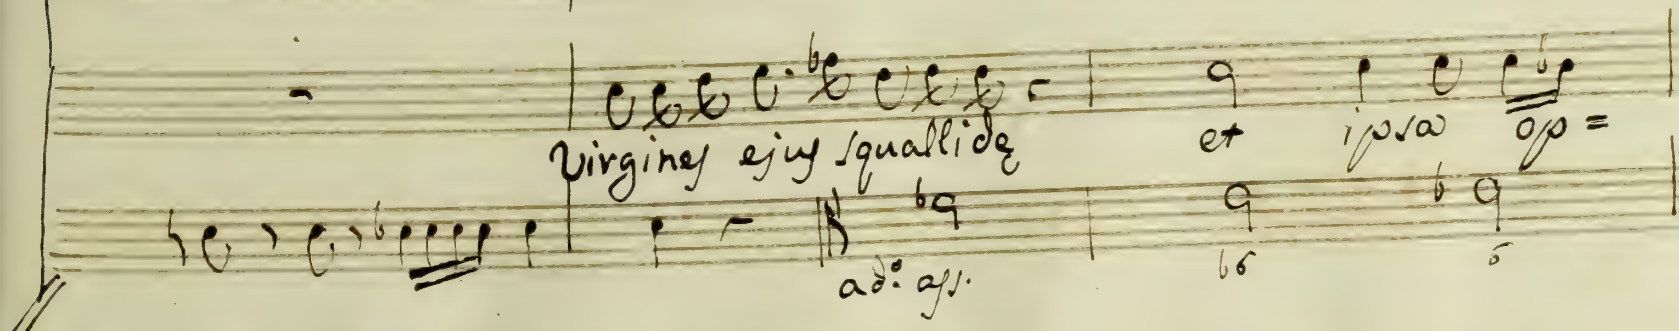 Virgines ejus squallidę et ipsa op=
ad.o ass.
b6 6